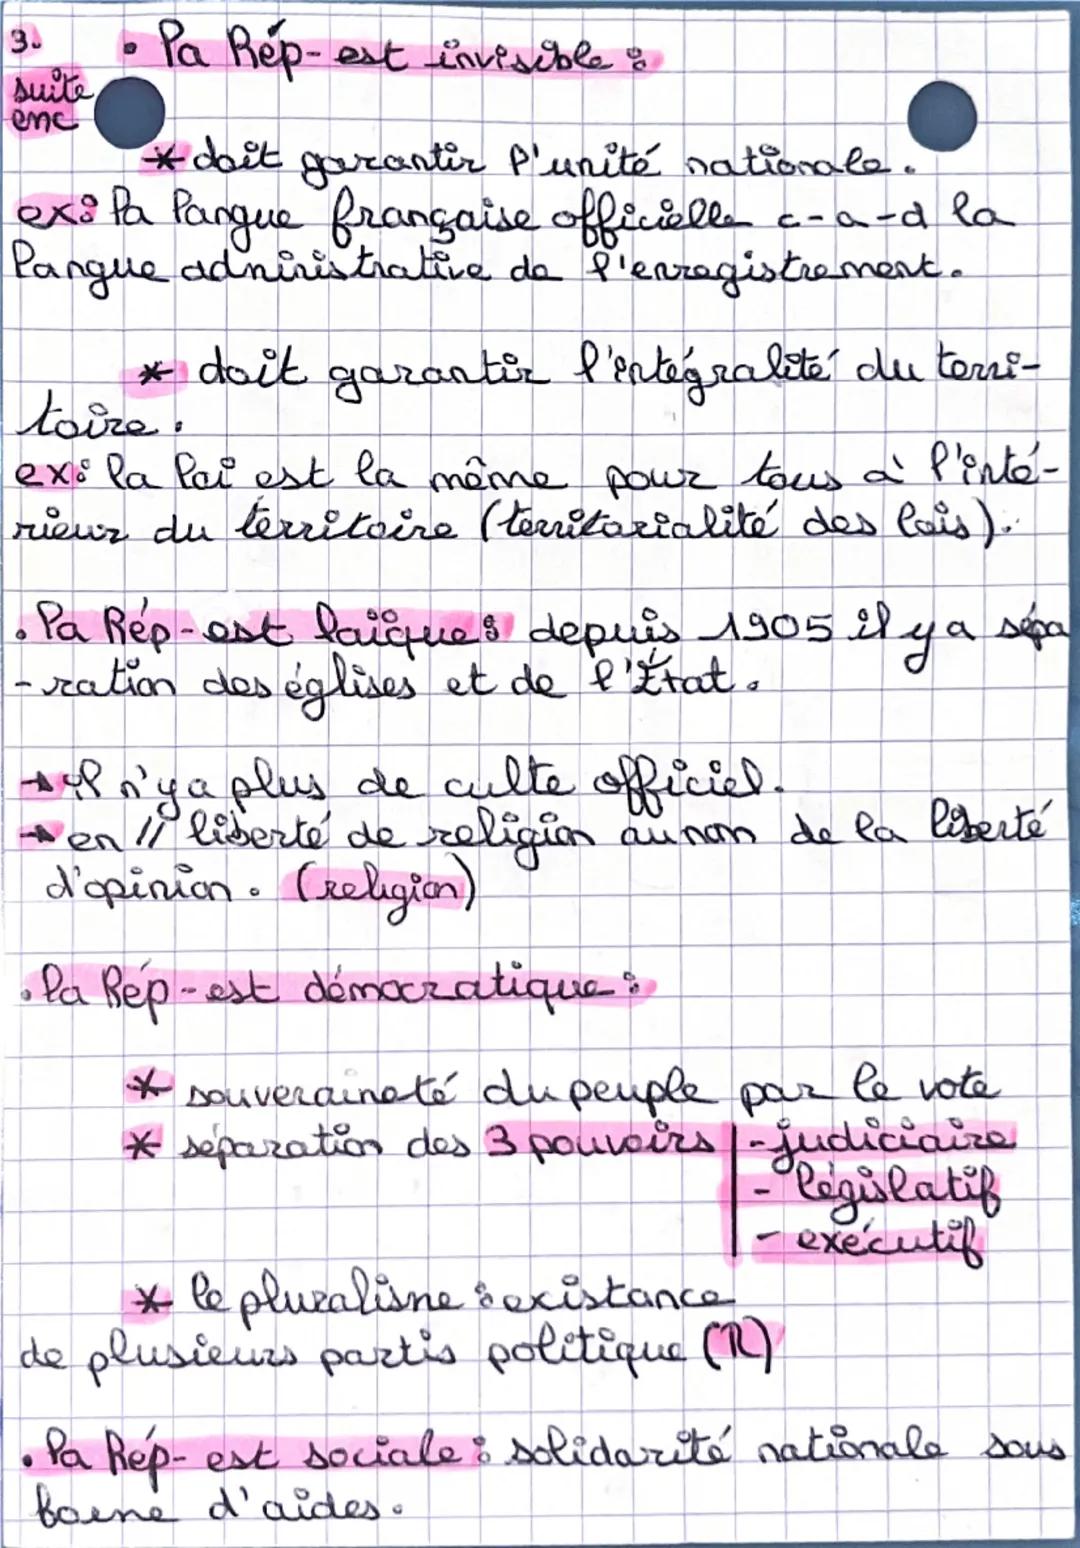 3. • la Rép- est invisible :
suite
enc
* doit garantir l'unité nationale.
ex: la langue française officielle c-a-d la
langue administrative de l'enregistrement.
* doit garantir l'intégralité du terri-
toire.
ex: la loi est la même pour tous à l'inté-
rieur du territoire (territorialité des lois).
• la Rép- est laïque: depuis 1905 il y a sépa
-ration des églises et de l'État.
→ il n'y a plus de culte officiel.
→ en // liberté de religion au nom de la liberté
d'opinion. (religion)
• la Rép- est démocratique :
* souveraineté du peuple par le vote
* séparation des 3 pouvoirs | - judiciaire
- législatif
- exécutif
* le pluralisme : existance
de plusieurs partis politique (R)
• la Rép- est sociale : solidarité nationale sous
forme d'aides.